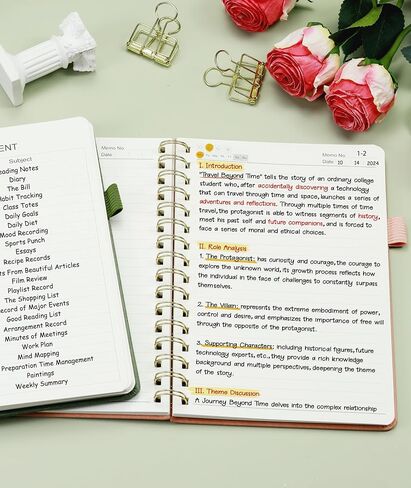 ENT
Subject
eading Notes
Diary
The Bill
Habit Tracking
Class Totes
Daily Goals
Daily Diet
Mood Recording
Sports Punch
Essays
Recipe Records
ts From Beautiful Articles
Film Review
Playlist Record
The Shopping List
Record of Major Events
Good Reading List
Arrangement Record
Minutes of Meetings
Work Plan
Mind Mapping
Preparation Time Management
Paintings
Weekly Summary
Memo No.
Date
Memo No. 1-2
Date 10 14 2024
I. Introduction
"Travel Beyond Time" tells the story of an ordinary college
student who, after accidentally discovering a technology
that can travel through time and space, launches a series of
adventures and reflections. Through multiple times of time
travel, the protagonist is able to witness segments of history,
meet his past self and future companions, and is forced to
face a series of moral and ethical choices.
II. Role Analysis
1. The Protagonist: has curiosity and courage, the courage to
explore the unknown world, its growth process reflects how
the individual in the face of challenges to constantly surpass
themselves.
2. The Villain: represents the extreme embodiment of power,
control and desire, and emphasizes the importance of free will
through the opposite of the protagonist.
3. Supporting Characters: including historical figures, future
technology experts, etc., they provide a rich knowledge
background and multiple perspectives, deepening the theme
of the story.
III. Theme Discussion
A Journey Beyond Time delves into the complex relationship